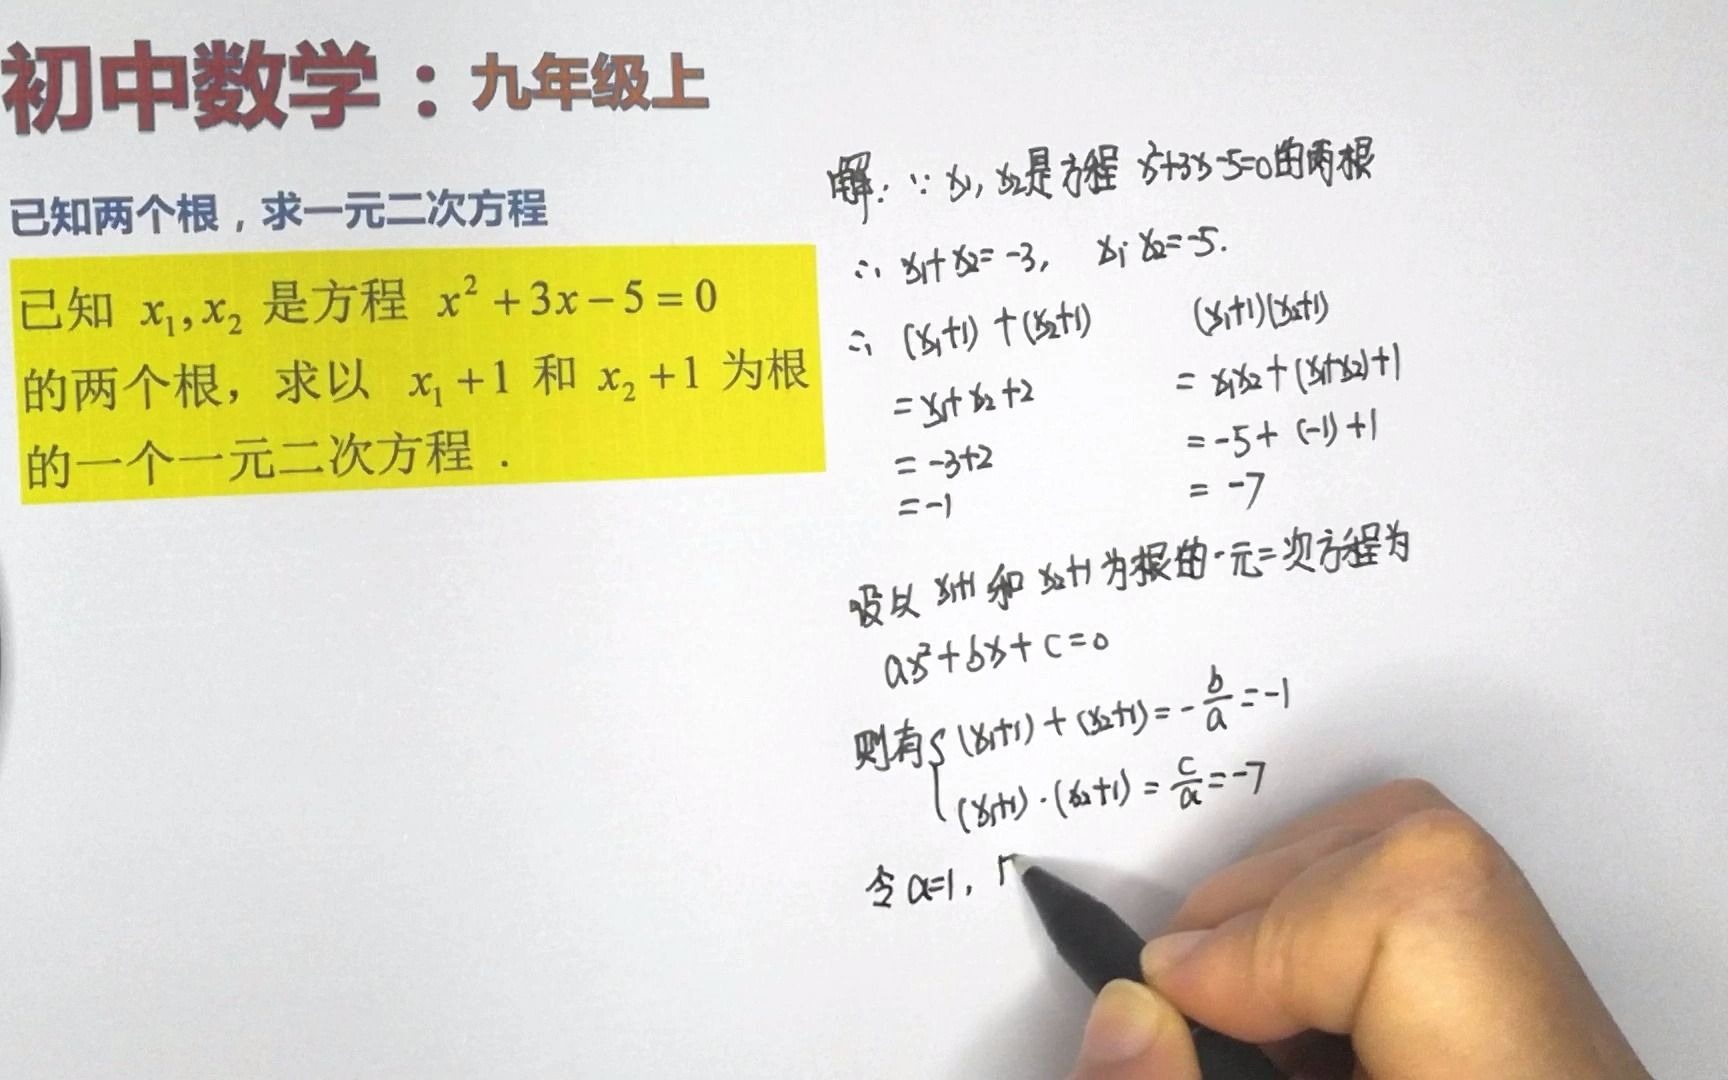 初中数学：九年级上
已知两个根，求一元二次方程
已知 x₁,x₂ 是方程 x²+3x−5=0
的两个根，求以 x₁+1 和 x₂+1 为根
的一个一元二次方程．
解：∵ x₁, x₂是方程 x²+3x-5=0的两根
∴ x₁+x₂=-3, x₁·x₂=-5.
∴ (x₁+1)+(x₂+1) (x₁+1)(x₂+1)
=x₁+x₂+2 =x₁x₂+(x₁+x₂)+1
=-3+2 =-5+(-1)+1
=-1 =-7
设以 x₁+1 和 x₂+1 为根的一元二次方程为
ax²+bx+c=0
则有{(x₁+1)+(x₂+1)=-b/a=-1
(x₁+1)·(x₂+1)=c/a=-7
令a=1,